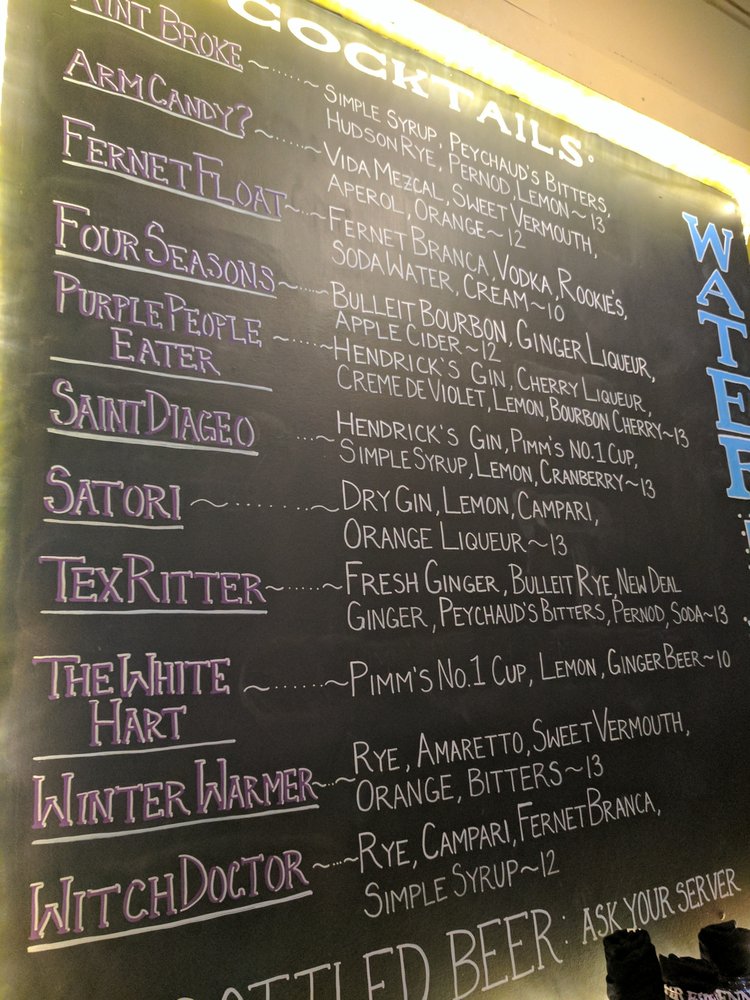 COCKTAILS
AINT BROKE ~......~ SIMPLE SYRUP, PEYCHAUD'S BITTERS,
HUDSON RYE, PERNOD, LEMON~13
ARM CANDY? ~......~ VIDA MEZCAL, SWEET VERMOUTH,
APEROL, ORANGE~12
FERNET FLOAT ~...~ FERNET BRANCA, VODKA, ROOKIE'S,
SODA WATER, CREAM~10
FOUR SEASONS ~....~ BULLEIT BOURBON, GINGER LIQUEUR,
APPLE CIDER~12
PURPLE PEOPLE
EATER ~.....~ HENDRICK'S GIN, CHERRY LIQUEUR,
CREME DE VIOLET, LEMON, BOURBON CHERRY~13
SAINT DIAGEO ...~ HENDRICK'S GIN, PIMM'S NO.1 CUP,
SIMPLE SYRUP, LEMON, CRANBERRY~13
SATORI ~.........~ DRY GIN, LEMON, CAMPARI,
ORANGE LIQUEUR~13
TEX RITTER ~......~ FRESH GINGER, BULLEIT RYE, NEW DEAL
GINGER, PEYCHAUD'S BITTERS, PERNOD, SODA~13
THE WHITE
HART ~......~ PIMM'S NO.1 CUP, LEMON, GINGER BEER~10
WINTER WARMER ~...~ RYE, AMARETTO, SWEET VERMOUTH,
ORANGE, BITTERS~13
WITCH DOCTOR ~...~ RYE, CAMPARI, FERNET BRANCA,
SIMPLE SYRUP~12
BOTTLED BEER: ASK YOUR SERVER
WATER